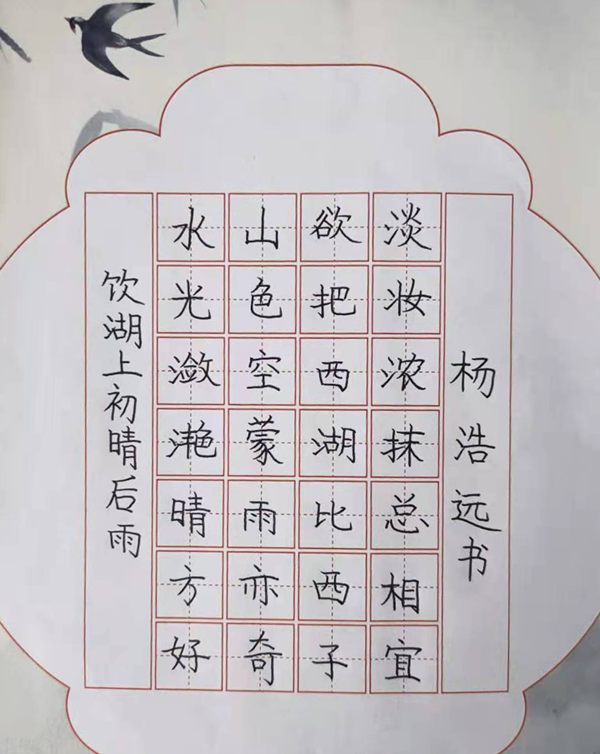 饮湖上初晴后雨
水光潋滟晴方好
山色空蒙雨亦奇
欲把西湖比西子
淡妆浓抹总相宜
杨浩远书